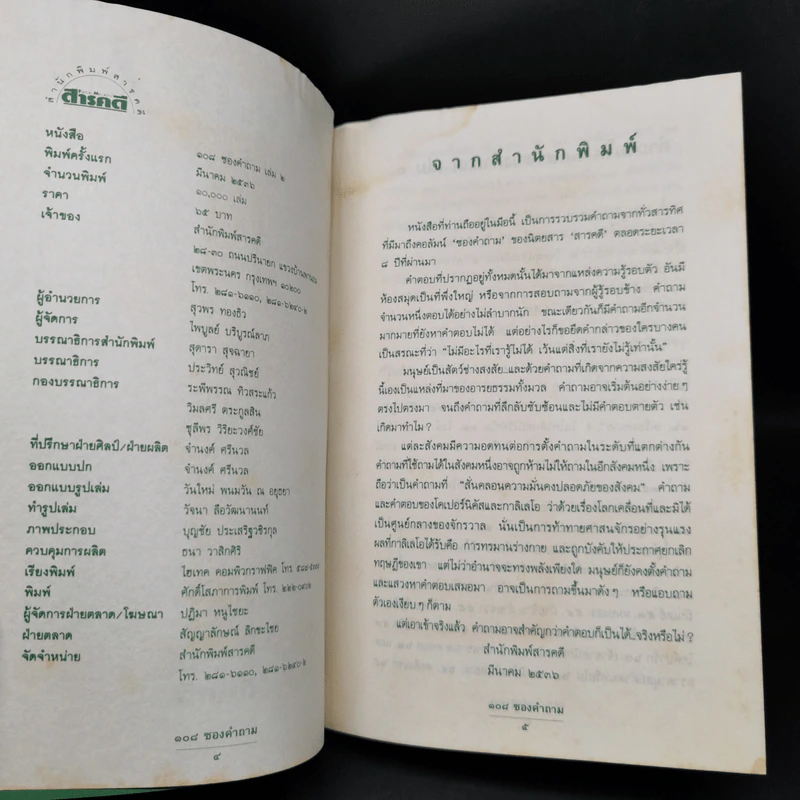 สำนักพิมพ์สารคดี
สารคดี
หนังสือ ๑๐๘ ซองคำถาม เล่ม ๒
พิมพ์ครั้งแรก มีนาคม ๒๕๓๖
จำนวนพิมพ์ ๑๐,๐๐๐ เล่ม
ราคา ๖๕ บาท
เจ้าของ สำนักพิมพ์สารคดี
๒๘-๓๐ ถนนปรินายก แขวงบ้านพานถม
เขตพระนคร กรุงเทพฯ ๑๐๒๐๐
โทร. ๒๘๑-๖๑๑๐, ๒๘๑-๖๒๔๐-๒
ผู้อำนวยการ สุวพร ทองธิว
ผู้จัดการ ไพบูลย์ บริบูรณ์ลาภ
บรรณาธิการสำนักพิมพ์ สุดารา สุจฉายา
บรรณาธิการ ประวิทย์ สุวณิชย์
กองบรรณาธิการ ระพีพรรณ ทิวสระแก้ว
วิมลศรี ตระกูลสิน
ชุลีพร วิริยะวงศ์ชัย
ที่ปรึกษาฝ่ายศิลป์/ฝ่ายผลิต จำนงค์ ศรีนวล
ออกแบบปก จำนงค์ ศรีนวล
ออกแบบรูปเล่ม วันใหม่ พนมวัน ณ อยุธยา
ทำรูปเล่ม วัจนา ลือวัฒนานนท์
ภาพประกอบ บุญชัย ประเสริฐวชิรกุล
ควบคุมการผลิต ธนา วาสิกศิริ
เรียงพิมพ์ ไฮเทค คอมพิวกราฟฟิค โทร.
พิมพ์ ศักดิ์โสภาการพิมพ์ โทร.
ผู้จัดการฝ่ายตลาด/โฆษณา ปฏิมา หนูไชยะ
ฝ่ายตลาด สัญญาลักษณ์ ลิกขะไชย
จัดจำหน่าย สำนักพิมพ์สารคดี
โทร. ๒๘๑-๖๑๑๐, ๒๘๑-๖๒๔๐-๒
๑๐๘ ซองคำถาม
๔
จากสำนักพิมพ์
หนังสือที่ท่านถืออยู่ในมือนี้ เป็นการรวบรวมคำถามจากทั่วสารทิศ
ที่มีมาถึงคอลัมน์ 'ซองคำถาม' ของนิตยสาร 'สารคดี' ตลอดระยะเวลา
๘ ปีที่ผ่านมา
คำตอบที่ปรากฏอยู่ทั้งหมดนั้นได้มาจากแหล่งความรู้รอบตัว อันมี
ห้องสมุดเป็นที่พึ่งใหญ่ หรือจากการสอบถามจากผู้รู้รอบข้าง คำถาม
จำนวนหนึ่งตอบได้อย่างไม่ลำบากนัก ขณะเดียวกันก็มีคำถามอีกจำนวน
มากมายที่ยังหาคำตอบไม่ได้ แต่อย่างไรก็ขอยึดคำกล่าวของใครบางคน
เป็นสรณะที่ว่า "ไม่มีอะไรที่เรารู้ไม่ได้ เว้นแต่สิ่งที่เรายังไม่รู้เท่านั้น"
มนุษย์เป็นสัตว์ช่างสงสัย...และด้วยคำถามที่เกิดจากความสงสัยใคร่รู้
นี้เองเป็นแหล่งที่มาของอารยธรรมทั้งมวล คำถามอาจเริ่มต้นอย่างง่าย ๆ
ตรงไปตรงมา จนถึงคำถามที่ลึกลับซับซ้อนและไม่มีคำตอบตายตัว เช่น
เกิดมาทำไม?
แต่ละสังคมมีความอดทนต่อการตั้งคำถามในระดับที่แตกต่างกัน
คำถามที่ใช้ถามได้ในสังคมหนึ่งอาจถูกห้ามไม่ให้ถามในอีกสังคมหนึ่ง เพราะ
ถือว่าเป็นคำถามที่ "สั่นคลอนความมั่นคงปลอดภัยของสังคม" คำถาม
และคำตอบของโคเปอร์นิคัสและกาลิเลโอ ว่าด้วยเรื่องโลกเคลื่อนที่และมิได้
เป็นศูนย์กลางของจักรวาล นั่นเป็นการท้าทายศาสนจักรอย่างรุนแรง
ผลที่กาลิเลโอได้รับคือ การทรมานร่างกาย และถูกบังคับให้ประกาศยกเลิก
ทฤษฎีของเขา แต่ไม่ว่าอำนาจจะทรงพลังเพียงใด มนุษย์ก็ยังคงตั้งคำถาม
และแสวงหาคำตอบเสมอมา อาจเป็นการถามขึ้นมาดัง ๆ หรือแอบถาม
ตัวเองเงียบ ๆ ก็ตาม
แต่เอาเข้าจริงแล้ว คำถามอาจสำคัญกว่าคำตอบก็เป็นได้..จริงหรือไม่?
สำนักพิมพ์สารคดี
มีนาคม ๒๕๓๖
๑๐๘ ซองคำถาม
๕